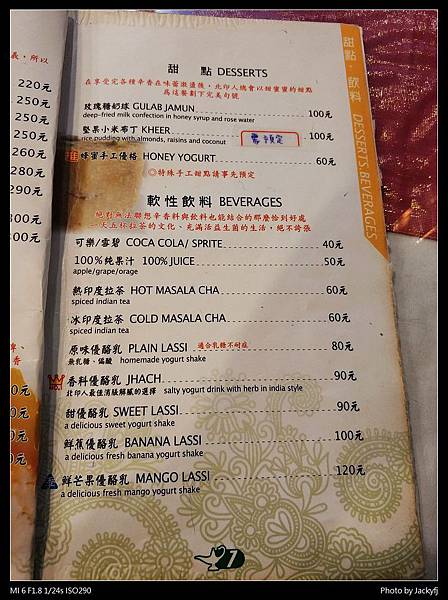 義，所以
220元
250元
250元
250元
260元
280元
290元
300元
甜 點 DESSERTS
在享受完各種辛香在味蕾激盪後，北印人總會以甜蜜蜜的甜點
為這餐劃下完美句號
玫瑰糖奶球 GULAB JAMUN 100元
deep-fried milk confection in honey syrup and rose water
堅果小米布丁 KHEER 需預定 100元
rice pudding with almonds, raisins and coconut
蜂蜜手工優格 HONEY YOGURT 60元
◎特殊手工甜點請事先預定
軟性飲料 BEVERAGES
絕對無法聯想辛香料與飲料也能結合的那麼恰到好處
一天五杯拉茶的文化、充滿活益生菌的生活，絕不誇張
可樂/雪碧 COCA COLA/ SPRITE 40元
100%純果汁 100% JUICE 50元
apple/grape/orage
熱印度拉茶 HOT MASALA CHA 60元
spiced indian tea
冰印度拉茶 COLD MASALA CHA 60元
spiced indian tea
原味優酪乳 PLAIN LASSI 適合乳糖不耐症 80元
無乳糖、偏酸 homemade yogurt shake
香料優酪乳 JHACH 90元
北印人最佳消脹解膩的選擇 salty yogurt drink with herb in india style
甜優酪乳 SWEET LASSI 90元
a delicious sweet yogurt shake
鮮蕉優酪乳 BANANA LASSI 100元
a delicious fresh banana yogurt shake
鮮芒果優酪乳 MANGO LASSI 120元
a delicious fresh mango yogurt shake
7
甜點．飲料 DESSERTS．BEVERAGES
MI 6 F1.8 1/24s ISO290
Photo by Jackyfj